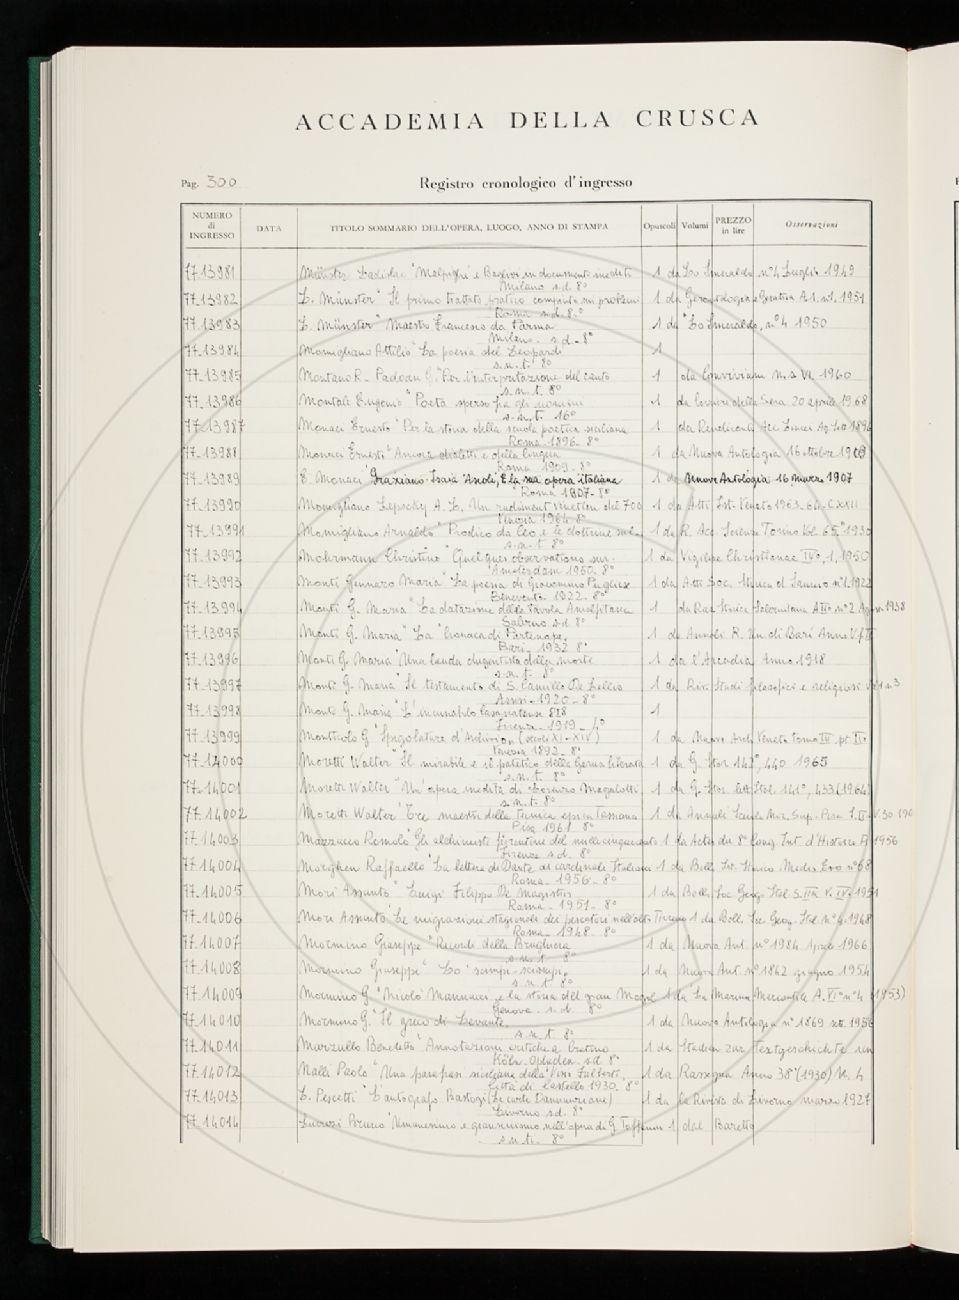 ACCADEMIA DELLA CRUSCA
Pag. 300 Registro cronologico d'ingresso
NUMERO di INGRESSO DATA TITOLO SOMMARIO DELL'OPERA, LUOGO, ANNO DI STAMPA Opuscoli Volumi PREZZO in lire Osservazioni
77-13981 Ladislao "Malpighi e Baglivi in documenti inediti 1 da Lo Smeraldo n° 4 Luglio 1949
Milano s.d. 8°
77-13982 L. Münster "Il primo trattato pratico compiuto sui problemi 1 da Gerontologia e Geriatria A.1. n.1. 1951
Roma s.d. 8°
77-13983 L. Münster "Maestro Francesco da Parma 1 da "Lo Smeraldo, n° 4 1950
Milano. s.d. 8°
77-13984 Momigliano Attilio "La poesia del Leopardi 1
s.n.t. 8°
77-13985 Montano R. Padoan G. "Per l'interpretazione del canto 1 da Convivium n.s. VI, 1960
s.n.t. 8°
77-13986 Montale Eugenio "Poeta sperso fra gli uomini 1 da Corriere della Sera 20 aprile 1968
s.n.t. 16°
77-13987 Monaci Ernesto "Per la storia della scuola poetica siciliana 1 da Rendiconti Acc. Lincei Ag. Sett 1896
Roma 1896. 8°
77-13988 Monaci Ernesto "Ancora dialetti e della lingua 1 da Nuova Antologia 16 ottobre 1909
Roma 1909. 8°
77-13989 E. Monaci "Graziano Isaia Ascoli, E la sua opera italiana 1 da Nuova Antologia 16 marzo 1907
Roma 1907. 8°
77-13990 Momigliano Lepschy A. L. Un rudiment venetien del 700 1 da Atti Ist. Veneto 1963-64. CXXII
Venezia 1964 8°
77-13991 Momigliano Arnaldo "Prodico da Ceo e le dottrine sul 1 da R. Acc. Scienze Torino Vol. 65° 1930
s.n.t. 8°
77-13992 Mohrmann Christine "Quelques observations sur 1 da Vigiliae Christianae IV°, 1, 1950
Amsterdam 1950. 8°
77-13993 Monti Gennaro Maria "La poesia di Giacomino Pugliese 1 da Atti Soc. Storica d. Sannio n° 1. 1922
Benevento 1922. 8°
77-13994 Monti G. Maria "La datazione della tavola Amalfitana 1 da Ras. Storica Salernitana A II° n° 2 1938
Salerno s.d. 8°
77-13995 Monti G. Maria "La "Cronaca di Partenope, 1 da Annali R. Un. di Bari Anno V.
Bari. 1932 8°
77-13996 Monti G. Maria "Una lauda duecentista della morte 1 da l'Arcadia Anno 1918
s.n.t. 8°
77-13997 Monti G. Maria "Il testamento di S. Camillo De Lellis 1 da Riv. Studi filosofici e religiosi Vol 1 n. 3
Assisi. 1920. 8°
77-13998 Monti G. Maria "L'incunabulo casanatense 818 1
Firenze. 1919. 4°
77-13999 Monticolo G "Spigolature d'Archivio (secoli XI-XIV) 1 da Nuovo Arch. Veneto Tomo IV pt. II
Venezia 1892. 8°
77-14000 Moretti Walter "Il mirabile e il patetico della Gerus. liberata 1 da G. Stor 142°, 440 1965
s.n.t. 8°
77-14001 Moretti Walter "Un'opera inedita di Lorenzo Magalotti 1 da G. Stor. lett. Ital. 141°, 433 (1964)
s.n.t. 8°
77-14002 Moretti Walter "Tre maestri della tecnica epica Tassiana 1 da Annali Scuola Nor. Sup. Pisa S. II V. 30 196
Pisa 1961 8°
77-14003 Romolo "Gli alchimisti fiorentini del 1 da Actes du 8° Cong. Int. d'Histoire 1956
Firenze s.d. 8°
77-14004 Morghen Raffaello "La lettera di Dante ai cardinali Italiani 1 da Boll. Ist. Storico Medio Evo n° 68
Roma. 1956. 8°
77-14005 Mori Assunto "Luigi Filippo De Magistris 1 da Boll. Soc. Geog. Ital. S. IIIa V. IV° 1951
Roma. 1951. 8°
77-14006 Mori Assunto "Le migrazioni stagionali dei pescatori nell'alto Tirreno 1 da Boll. Soc. Geog. Ital. n° 4. 1948
Roma. 1948. 8°
77-14007 Mormino Giuseppe "Ricordi della Brughiera 1 da Nuova Ant. n° 1984 Aprile 1966
s.n.t. 8°
77-14008 Mormino Giuseppe "Lo "scimpi-sciompi, 1 da Nuova Ant. n° 1842 giugno 1954
s.n.t. 8°
77-14009 Mormino G "Nicolò Manucci, e la storia del gran Mogol 1 da La Marina Mercantile A. VI° n° 4 (1953)
Genova. s.d. 8°
77-14010 Mormino G. "Il greco di Levante, 1 da Nuova Antologia n° 1869 sett. 1956
s.n.t. 8°
77-14011 Marzullo Benedetto "Annotazioni critiche a Cratino 1 da Studien zur Textgeschichte un
Köln. Opladen. s.d. 8°
77-14012 Nalli Paolo "Una parafrasi siciliana della "Visio Fulberti, 1 da Rassegna Anno 38° (1930) N. 4
Città di Castello 1930. 8°
77-14013 L. Pescetti "L'autografo Bastogi (Le carte Dannunziane) 1 da la Rivista di Livorno marzo 1927
Livorno s.d. 8°
77-14014 Umanesimo e giansenismo nell'opera di G. 1 dal Baretti
s.n.t. 8°